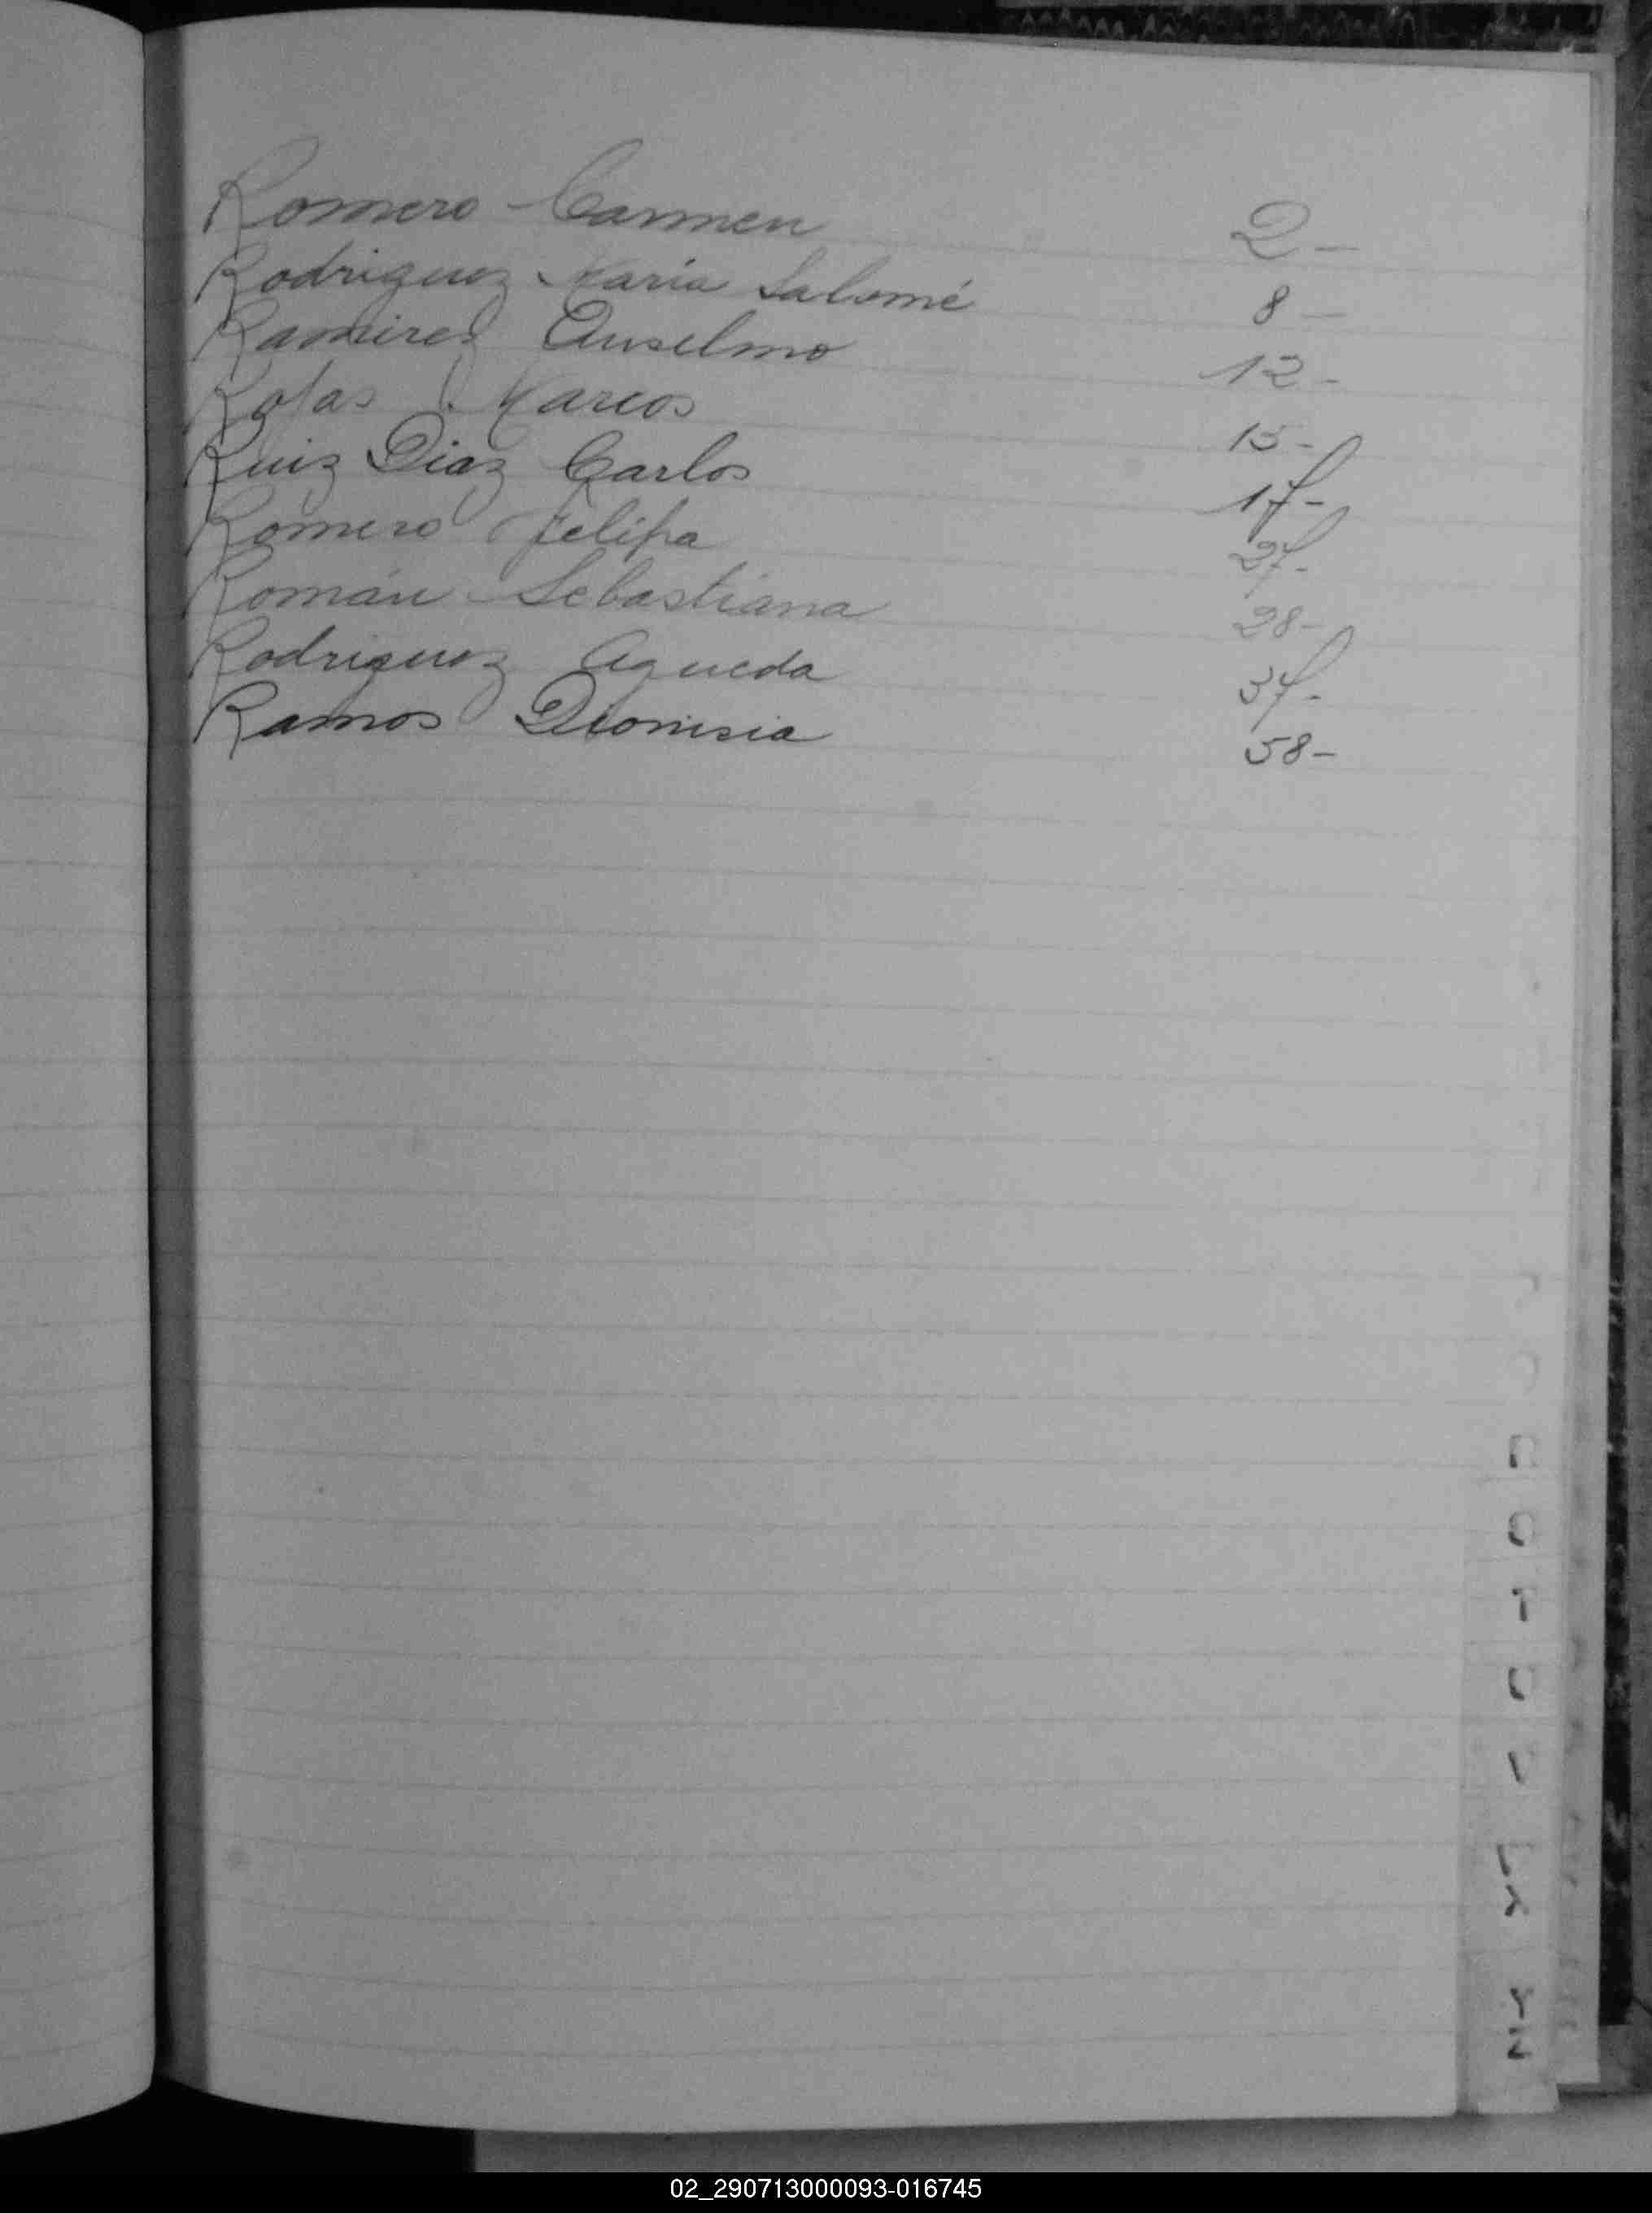 Romero Carmen 2-
Rodriguez Maria Salomé 8-
Ramirez Anselmo 12-
Rojas Marcos 15-
Ruiz Diaz Carlos 17-
Romero Felipa 27-
Román Sebastiana 28-
Rodriguez Agueda 37-
Ramos Dionisia 58-
02_290713000093-016745